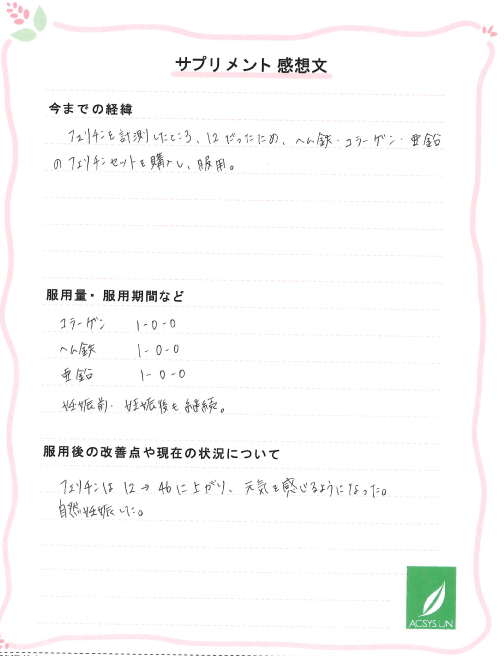 サプリメント 感想文
今までの経緯
フェリチンを計測したところ、12だったため、ヘム鉄・コラーゲン・亜鉛
のフェリチンセットを購入し、服用。
服用量・服用期間など
コラーゲン 1-0-0
ヘム鉄 1-0-0
亜鉛 1-0-0
妊娠前・妊娠後も継続。
服用後の改善点や現在の状況について
フェリチンは12→46に上がり、元気を感じるようになった。
自然妊娠した。
ACSYS UN